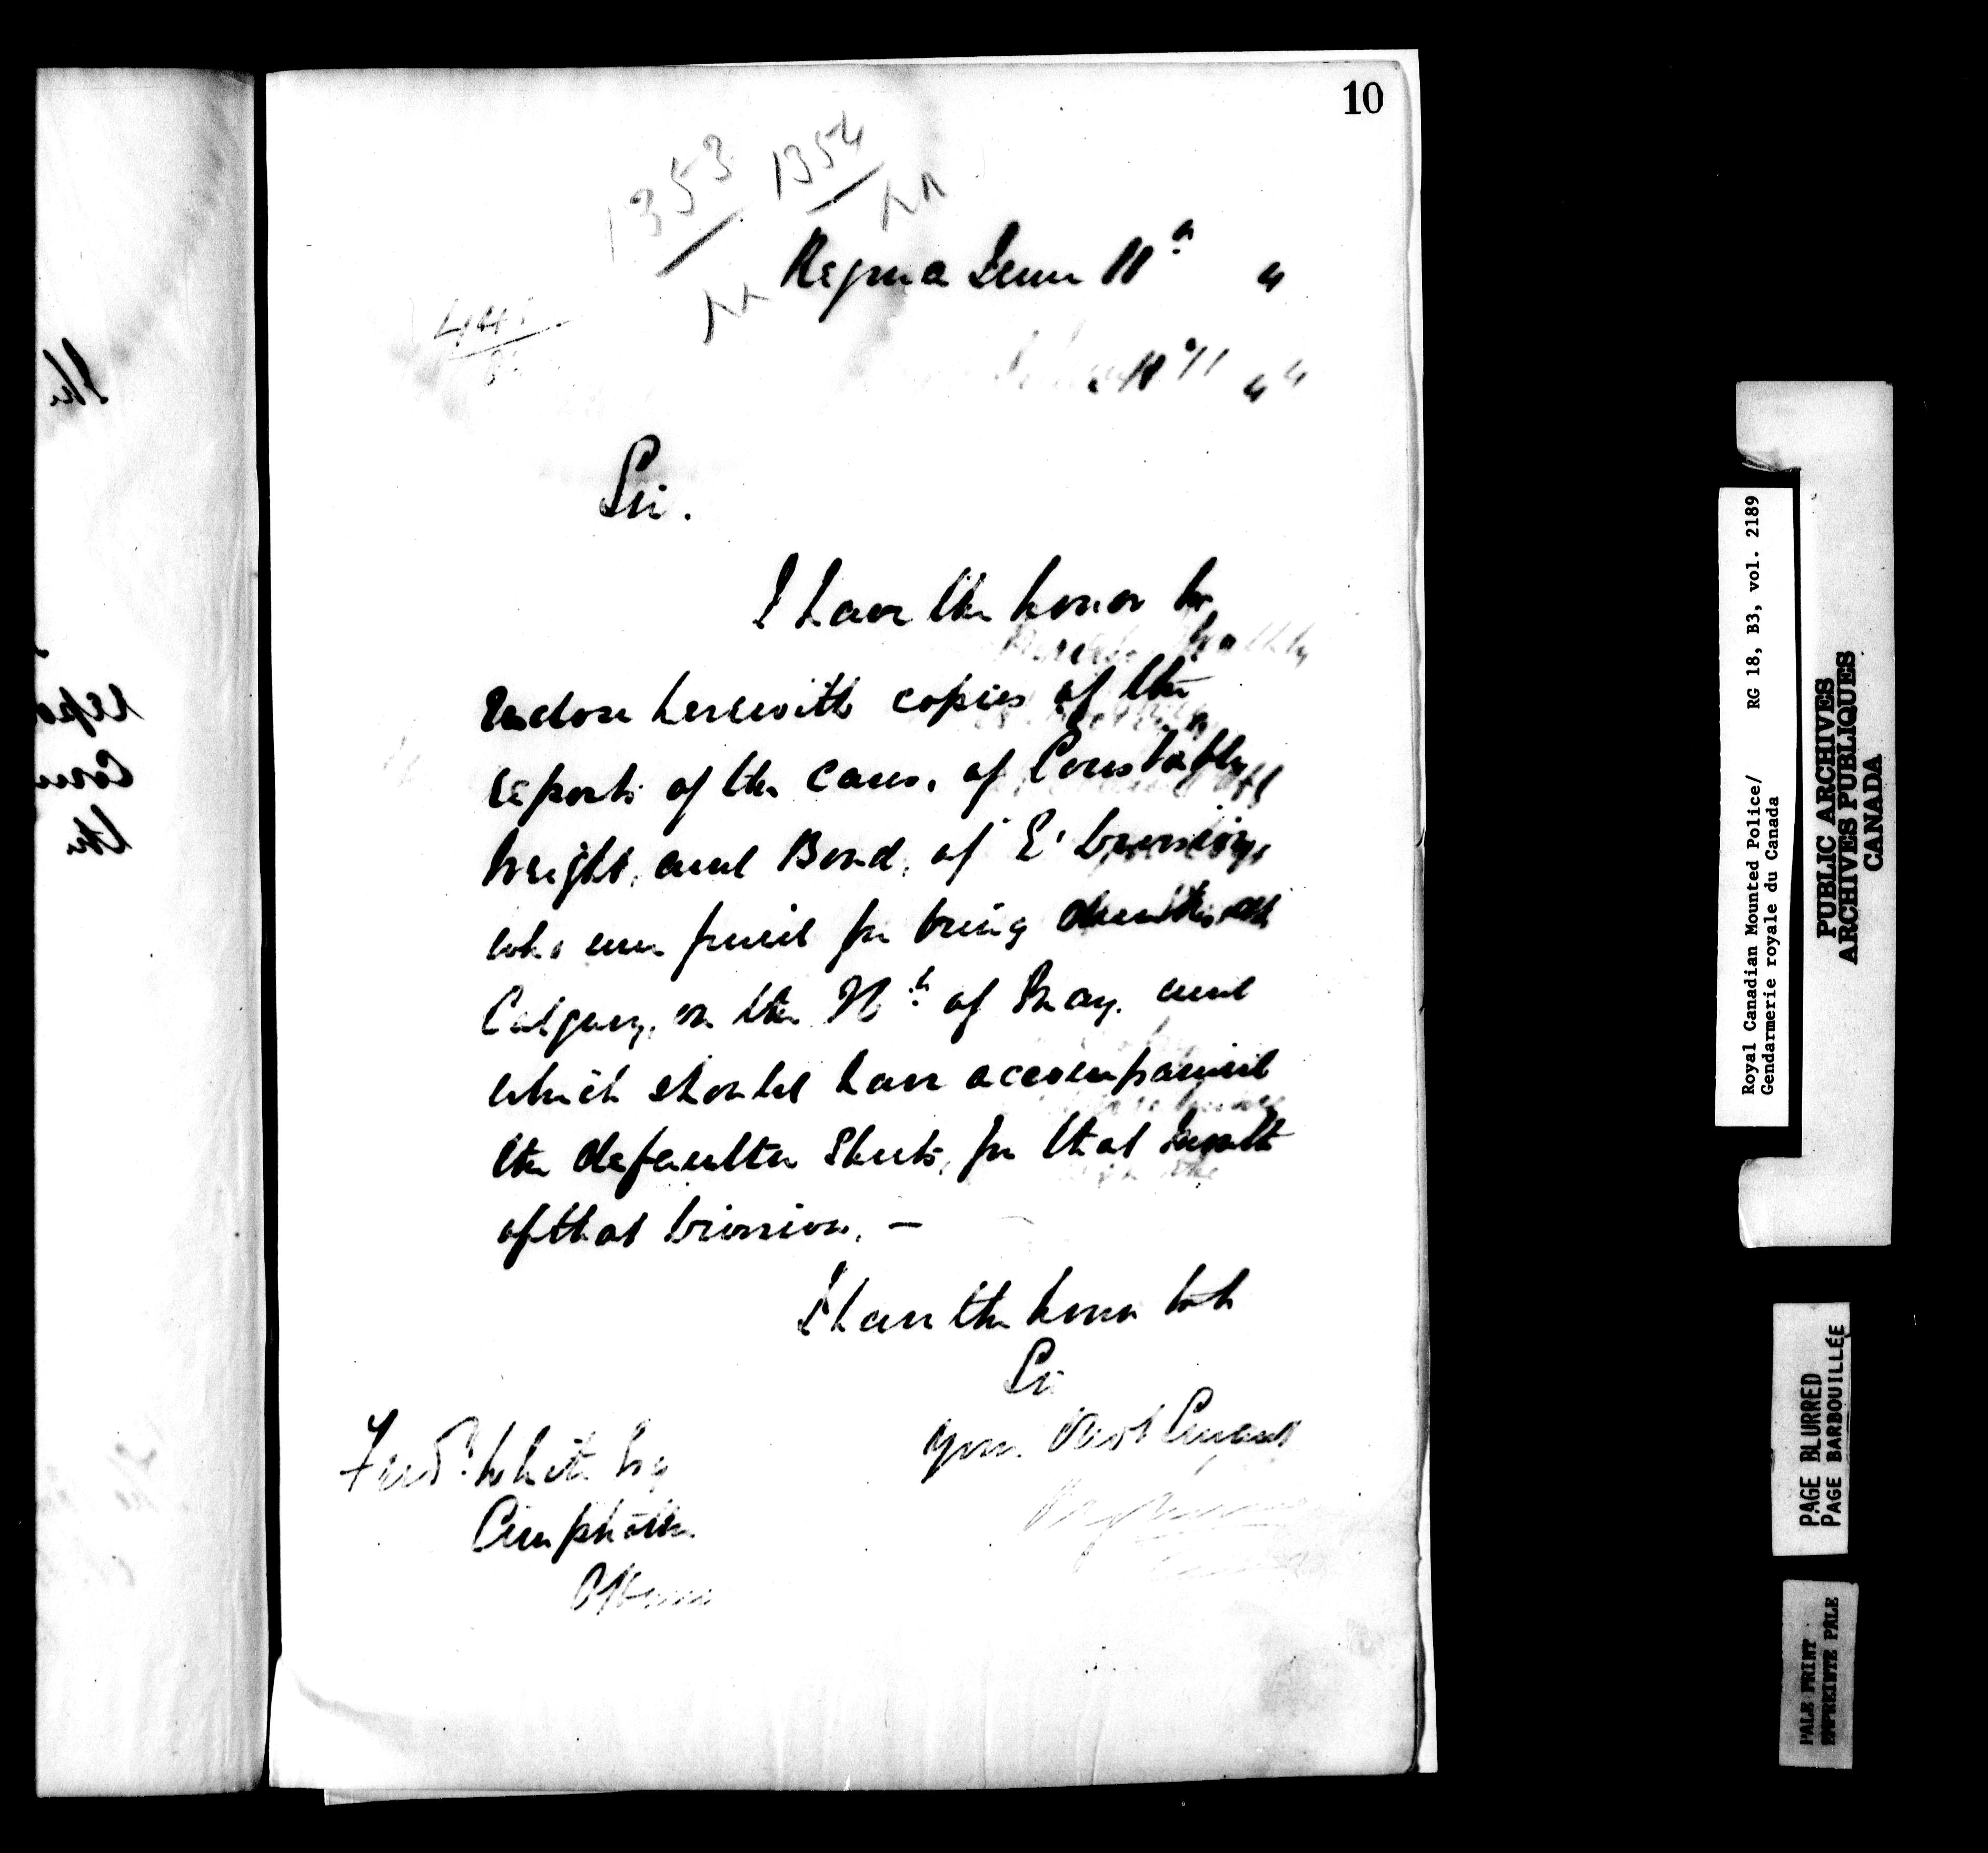 10
1353 1354
Regina June 11th "
Sir.
I have the honor to
Enclose herewith copies of the
reports of the cases, of Constables
Wright, and Bond, of E' Division,
who were fined for being drunk at
Calgary, on the of May. and
which should have accompanied
the defaulter Sheets, for that month
of that Division. —
I have the honor to be
Sir
Your Obdt Servant
Fredk White Esq
Comptroller
Ottawa
Royal Canadian Mounted Police/ RG 18, B3, vol. 2189
Gendarmerie royale du Canada
PUBLIC ARCHIVES
ARCHIVES PUBLIQUES
CANADA
PAGE BLURRED
PAGE BARBOUILLÉE
PALE PRINT
EMPREINTE PALE